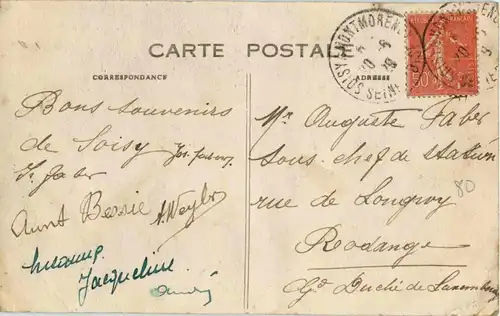 CARTE POSTALE
CORRESPONDANCE
ADRESSE
SOISY S MONTMORENCY
SEINE
RÉPUBLIQUE FRANÇAISE
50
Bons souvenirs
de Soisy
Faber
Aunt Bessie
A. Weyler
Jacqueline
André
Mr Auguste Faber
sous-chef de station
rue de Longwy
Rodange
Gd Duché de Luxembourg
80